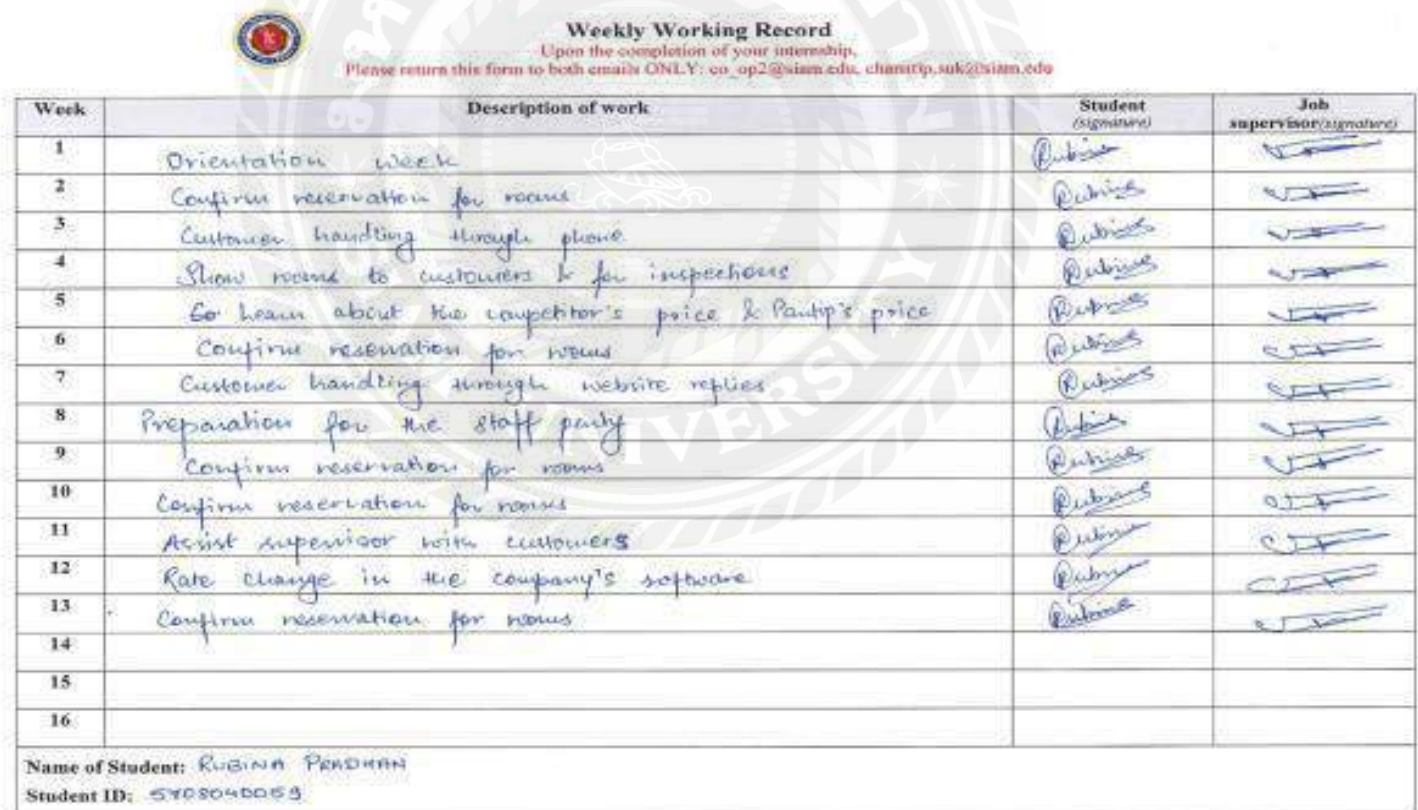 Weekly Working Record
Upon the completion of your internship,
Please return this form to both emails ONLY: co_op2@siam.edu, chanatip.suk@siam.edu
Week Description of work Student (signature) Job supervisor(signature)
1 Orientation week Rubina
2 Confirm reservation for rooms Rubina
3 Customer handling through phone Rubina
4 Show rooms to customers & for inspections Rubina
5 Learn about the competitor's price & Pantip's price Rubina
6 Confirm reservation for rooms Rubina
7 Customer handling through website replies Rubina
8 Preparation for the staff party Rubina
9 Confirm reservation for rooms Rubina
10 Confirm reservation for rooms Rubina
11 Assist supervisor with customers Rubina
12 Rate change in the company's software Rubina
13 Confirm reservation for rooms Rubina
14
15
16
Name of Student: RUBINA PRADHAN
Student ID:
UNIVERSITY